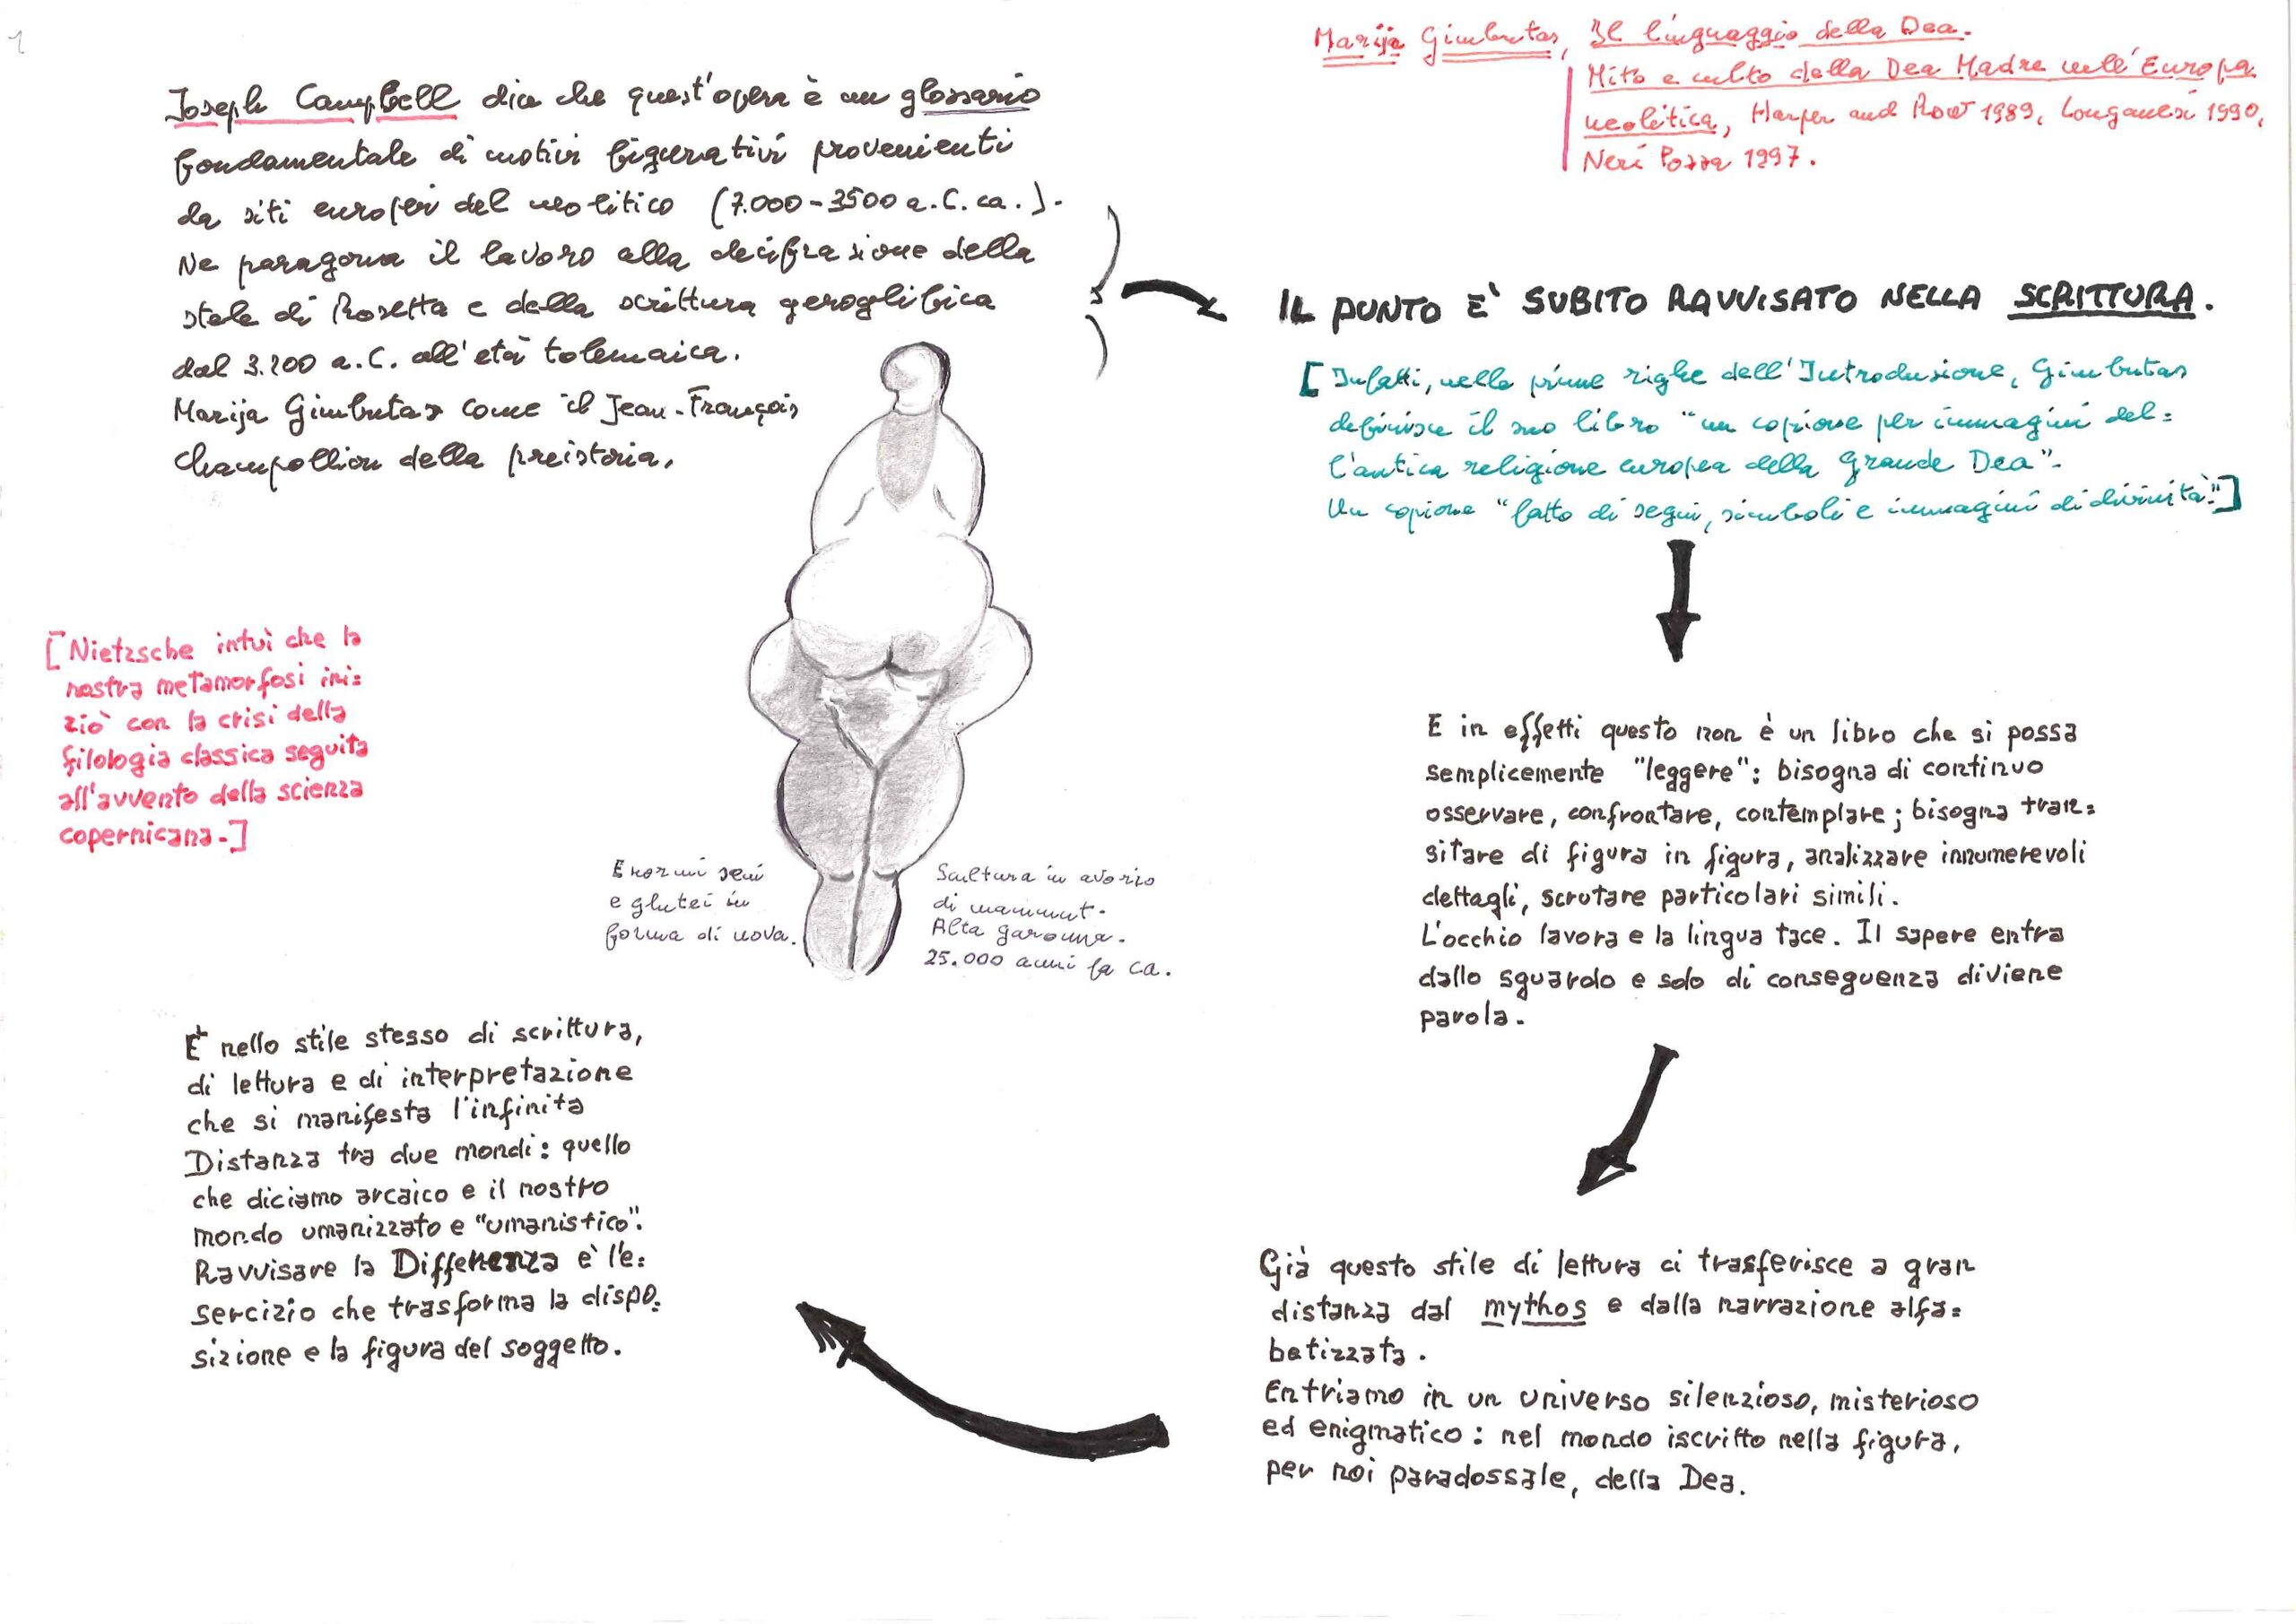 1
Marija Gimbutas, Il linguaggio della Dea.
Mito e culto della Dea Madre nell'Europa
neolitica, Harper and Row 1989, Longanesi 1990,
Neri Pozza 1997.
Joseph Campbell dice che quest'opera è un glossario
fondamentale di motivi figurativi provenienti
da siti europei del neolitico (7.000-3500 a.C. ca.).
Ne paragona il lavoro alla decifrazione della
stele di Rosetta e della scrittura geroglifica
dal 3.200 a.C. all'età tolemaica.
Marija Gimbutas come il Jean-François
Champollion della preistoria.
IL PUNTO E' SUBITO RAVVISATO NELLA SCRITTURA.
[Infatti, nelle prime righe dell'Introduzione, Gimbutas
definisce il suo libro "un copione per immagini del=
l'antica religione europea della Grande Dea".
Un copione "fatto di segni, simboli e immagini di divinità".]
E in effetti questo non è un libro che si possa
semplicemente "leggere": bisogna di continuo
osservare, confrontare, contemplare; bisogna tran=
sitare di figura in figura, analizzare innumerevoli
dettagli, scrutare particolari simili.
L'occhio lavora e la lingua tace. Il sapere entra
dallo sguardo e solo di conseguenza diviene
parola.
Già questo stile di lettura ci trasferisce a gran
distanza dal mythos e dalla narrazione alfa=
betizzata.
Entriamo in un universo silenzioso, misterioso
ed enigmatico: nel mondo iscritto nella figura,
per noi paradossale, della Dea.
È nello stile stesso di scrittura,
di lettura e di interpretazione
che si manifesta l'infinita
Distanza tra due mondi: quello
che diciamo arcaico e il nostro
mondo umanizzato e "umanistico".
Ravvisare la Differenza è l'e=
sercizio che trasforma la dispo=
sizione e la figura del soggetto.
[Nietzsche intuì che la
nostra metamorfosi ini=
ziò con la crisi della
filologia classica seguita
all'avvento della scienza
copernicana.]
Enormi seni
e glutei in
forma di uova.
Scultura in avorio
di mammut.
Alta Garonna.
25.000 anni fa ca.